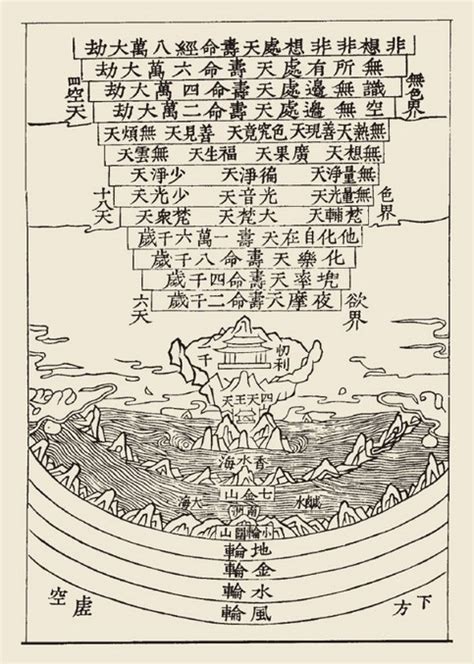 非想非非想處天壽命經八萬大劫
無所有處天壽命六萬大劫
識無邊處天壽命四萬大劫
空無邊處天壽命二萬大劫
無色界
四空天
無熱天 善現天 色究竟天 善見天 無煩天
無想天 廣果天 福生天 無雲天
無量淨天 徧淨天 少淨天
無量光天 光音天 少光天
梵輔天 大梵天 梵衆天
色界
十八天
他化自在天壽一萬六千歲
化樂天壽命八千歲
兜率天壽命四千歲
夜摩天壽命二千歲
欲界
六天
忉利
四天王天
香水海
七金山
鹹水
大海
南洲
小輪圍山
地輪
金輪
水輪
風輪
下方
虛空